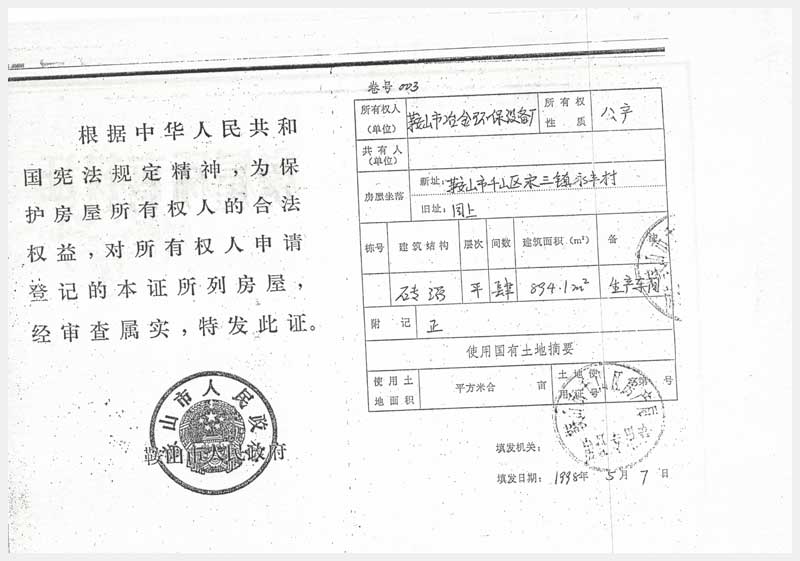 根据中华人民共和
国宪法规定精神，为保
护房屋所有权人的合法
权益，对所有权人申请
登记的本证所列房屋，
经审查属实，特发此证。
鞍山市人民政府
卷号 003
所有权人（单位） 鞍山市冶金环保设备厂 所有权性质 公产
共有人（单位）
房屋坐落 新址：鞍山市千山区宋三镇永丰村
旧址：同上
栋号 建筑结构 层次 间数 建筑面积（m²） 备
砖 平 肆 894.1m² 生产车间
附记 正
使用国有土地摘要
使用土地面积 平方米合 亩 土地使用证号 第 号
填发机关：
填发日期：1998年5月7日